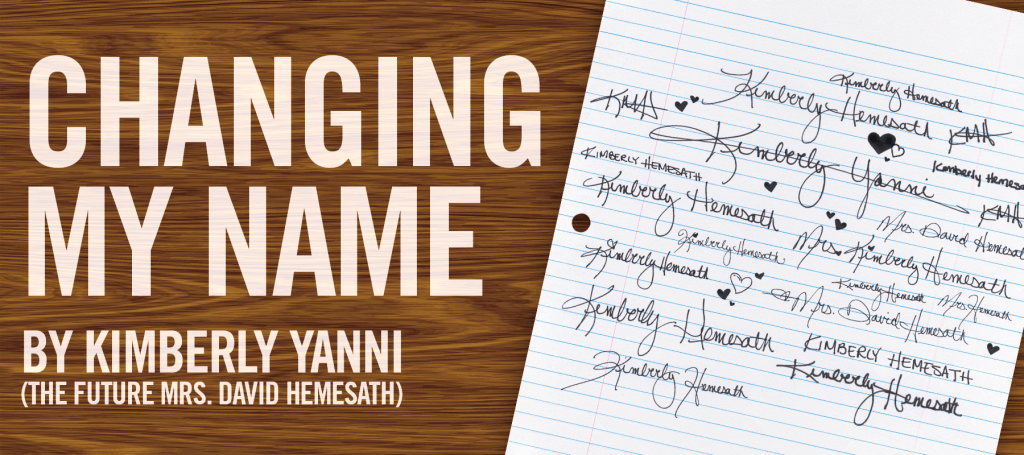 CHANGING
MY NAME
BY KIMBERLY YANNI
(THE FUTURE MRS. DAVID HEMESATH)
Kimberly Hemesath
Kimberly Hemesath
KMH
KMH
Kimberly Yanni
KIMBERLY HEMESATH
Kimberly Hemesath
KMH
Kimberly Hemesath
Mrs. David Hemesath
Kimberly Hemesath
Mrs. Kimberly Hemesath
Kimberly Hemesath
Kimberly Hemesath
Mrs. Hemesath
Mrs. David Hemesath
Kimberly Hemesath
KIMBERLY HEMESATH
Kimberly Hemesath
Kimberly Hemesath